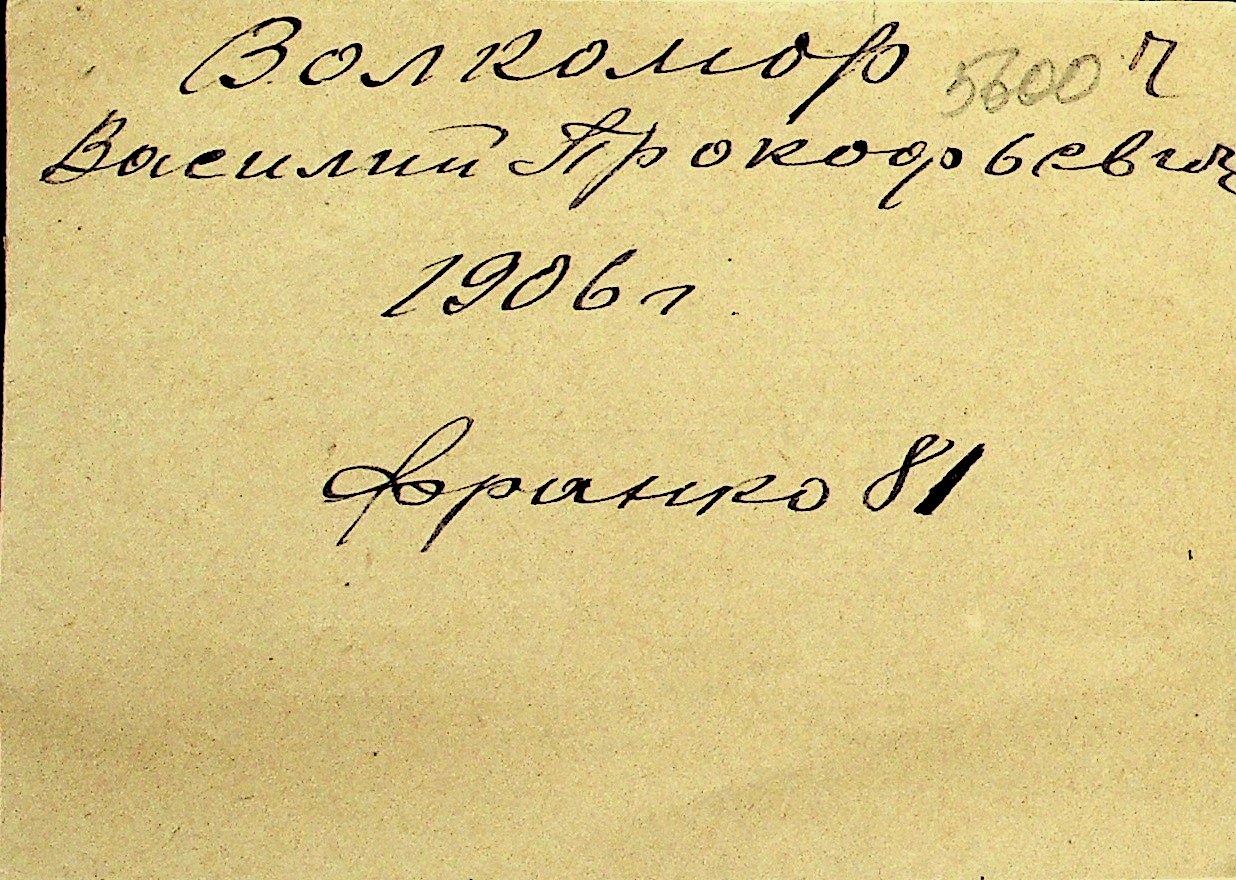 Волкомор 5600 Ч
Василий Прокофьевич
1906 г.
Франко 81